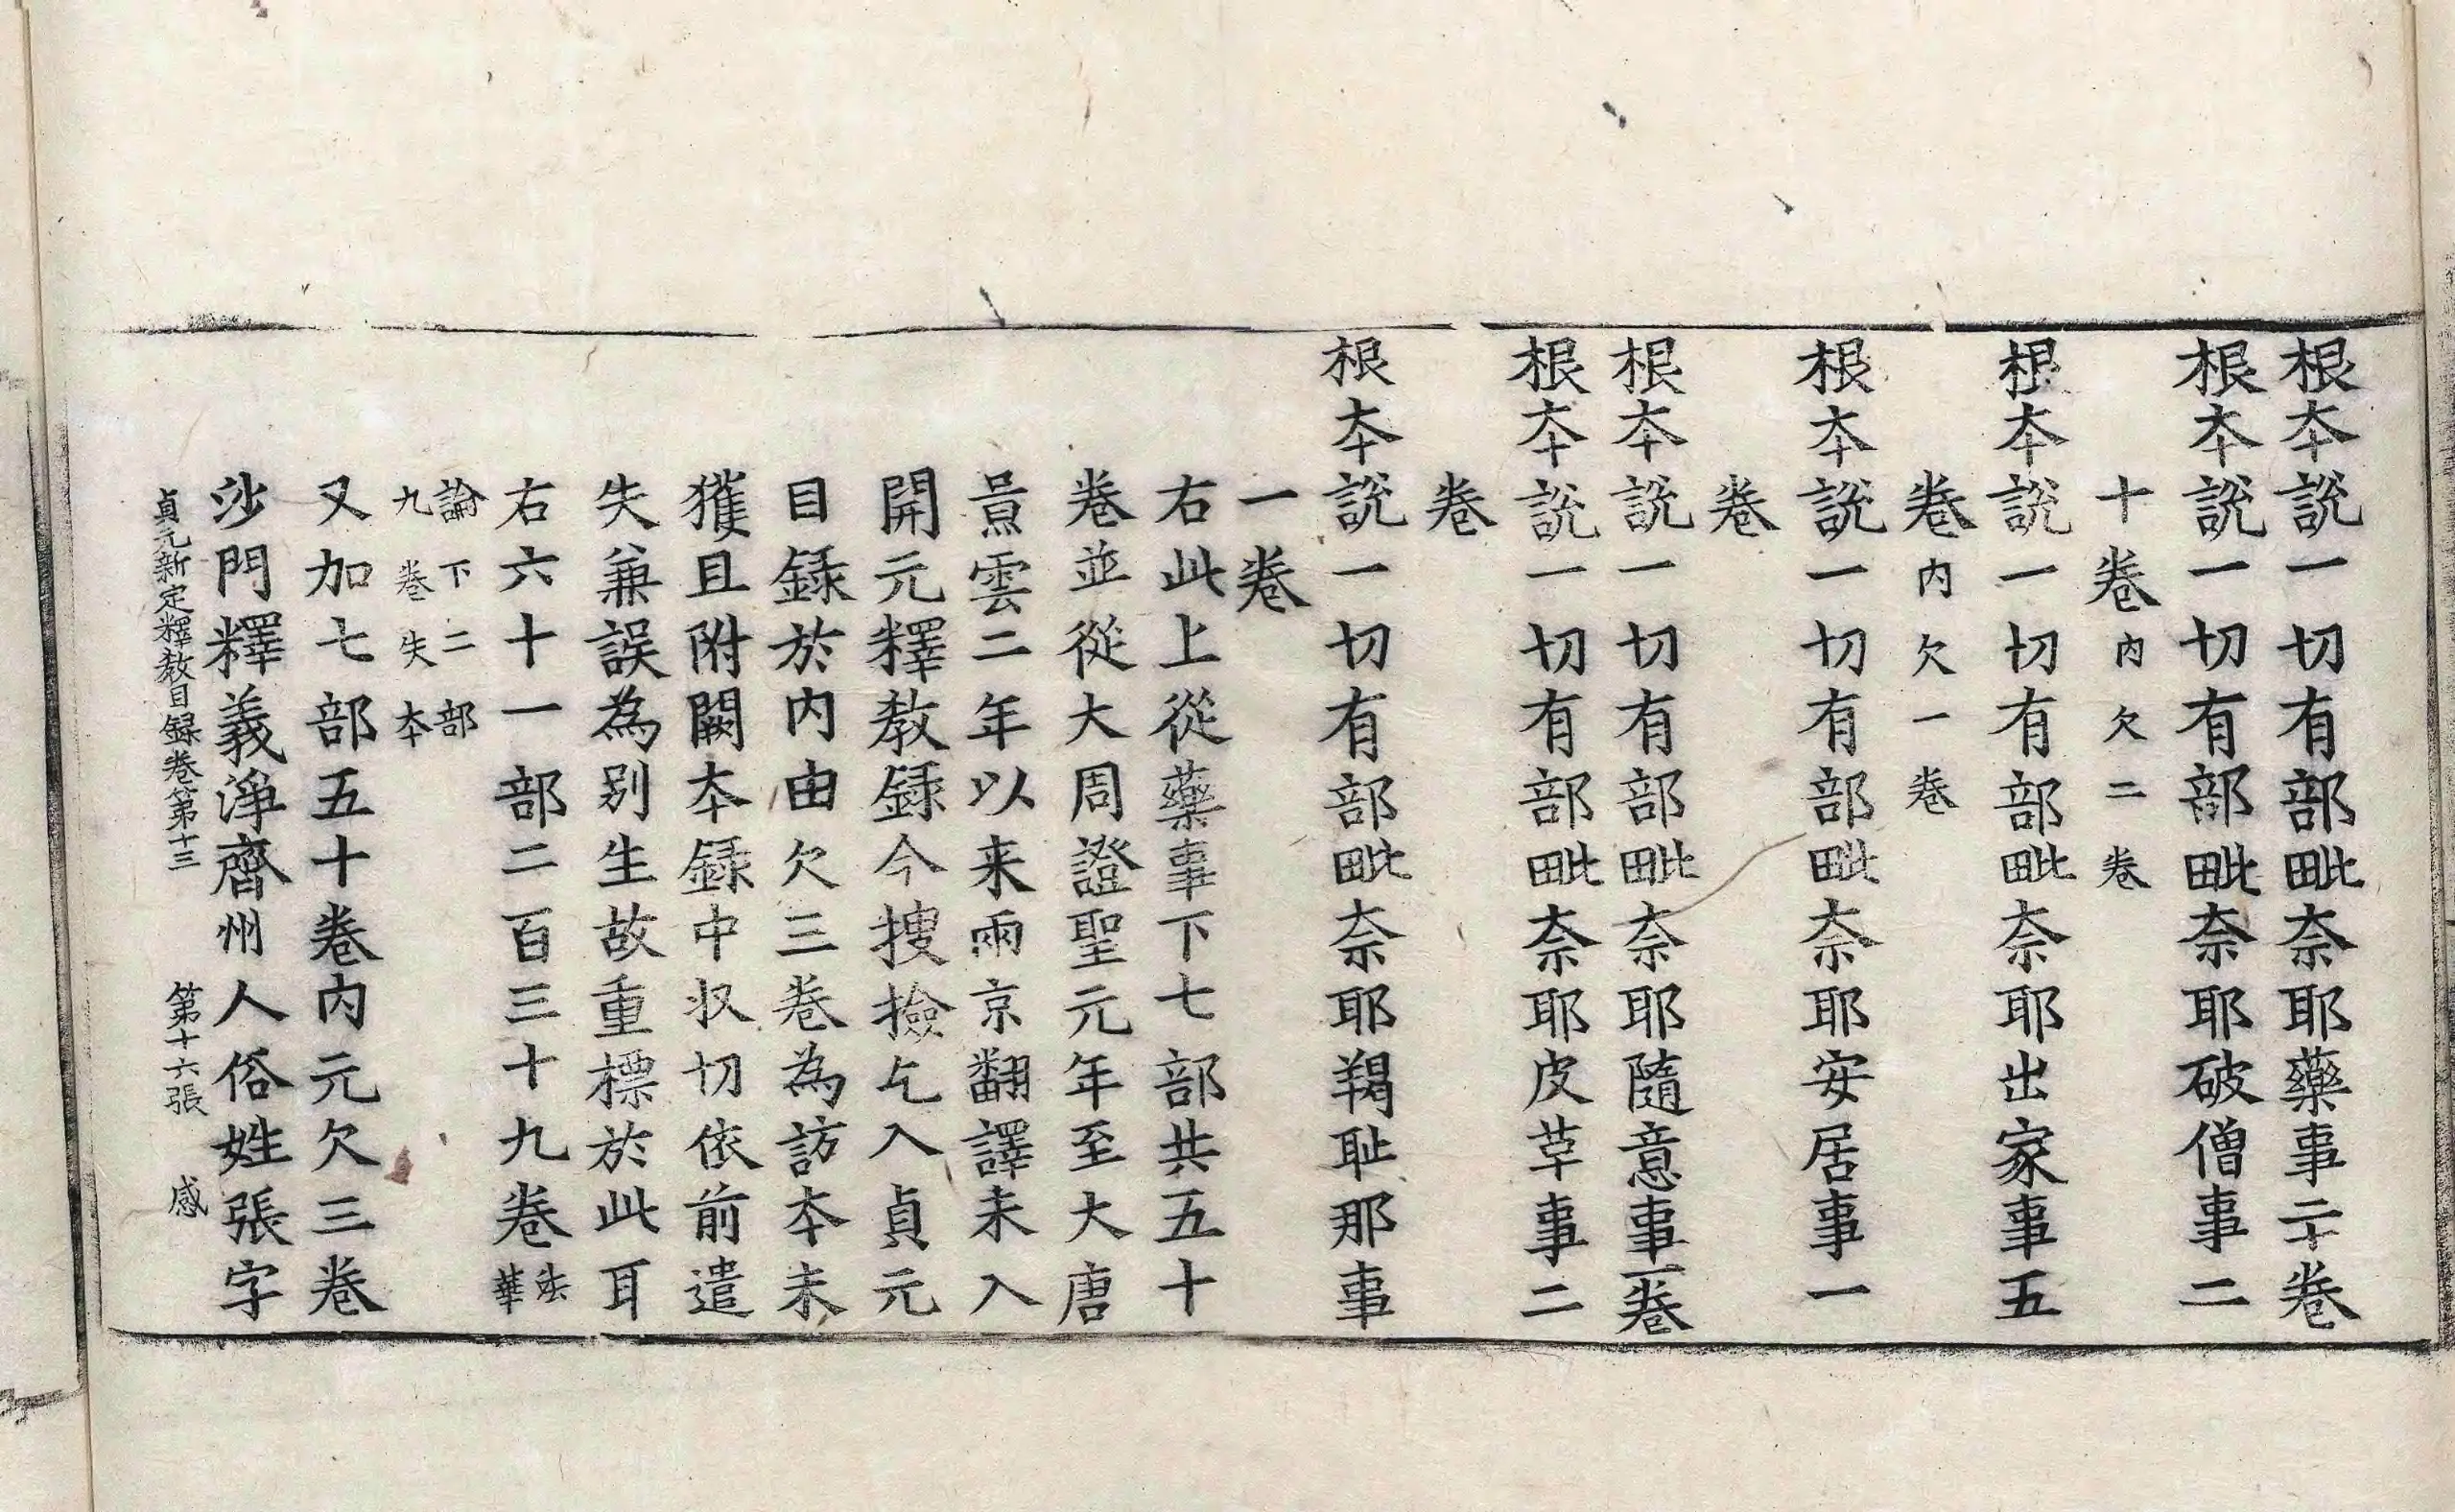 根本說一切有部毗奈耶藥事二十卷
根本說一切有部毗奈耶破僧事二
十卷内欠二卷
根本說一切有部毗奈耶出家事五
卷内欠一卷
根本說一切有部毗奈耶安居事一
卷
根本說一切有部毗奈耶隨意事一卷
根本說一切有部毗奈耶皮革事二
卷
根本說一切有部毗奈耶羯耻那事
一卷
右此上從藥事下七部共五十
卷並從大周證聖元年至大唐
景雲二年以来兩京翻譯未入
開元釋教録今搜撿乞入貞元
目録於内由欠三卷為訪本未
獲且附闕本録中収切依前遣
失兼誤為別生故重標於此耳
右六十一部二百三十九卷法華
論下二部
九卷失本
又加七部五十卷内元欠三卷
沙門釋義淨齊州人俗姓張字
貞元新定釋教目録卷第十三 第十六張 感